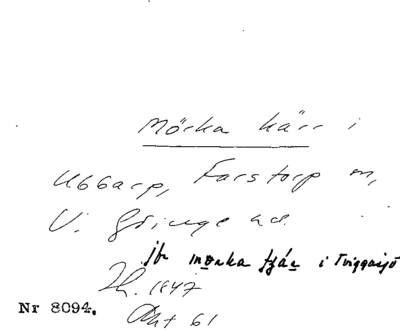 Mörka kärr i
Ubbarp, Farstorp m,
V. Göinge hd.
jfr morka tjär i Tviggasjö
Zh. 1847
Okt 61
Nr 8094.